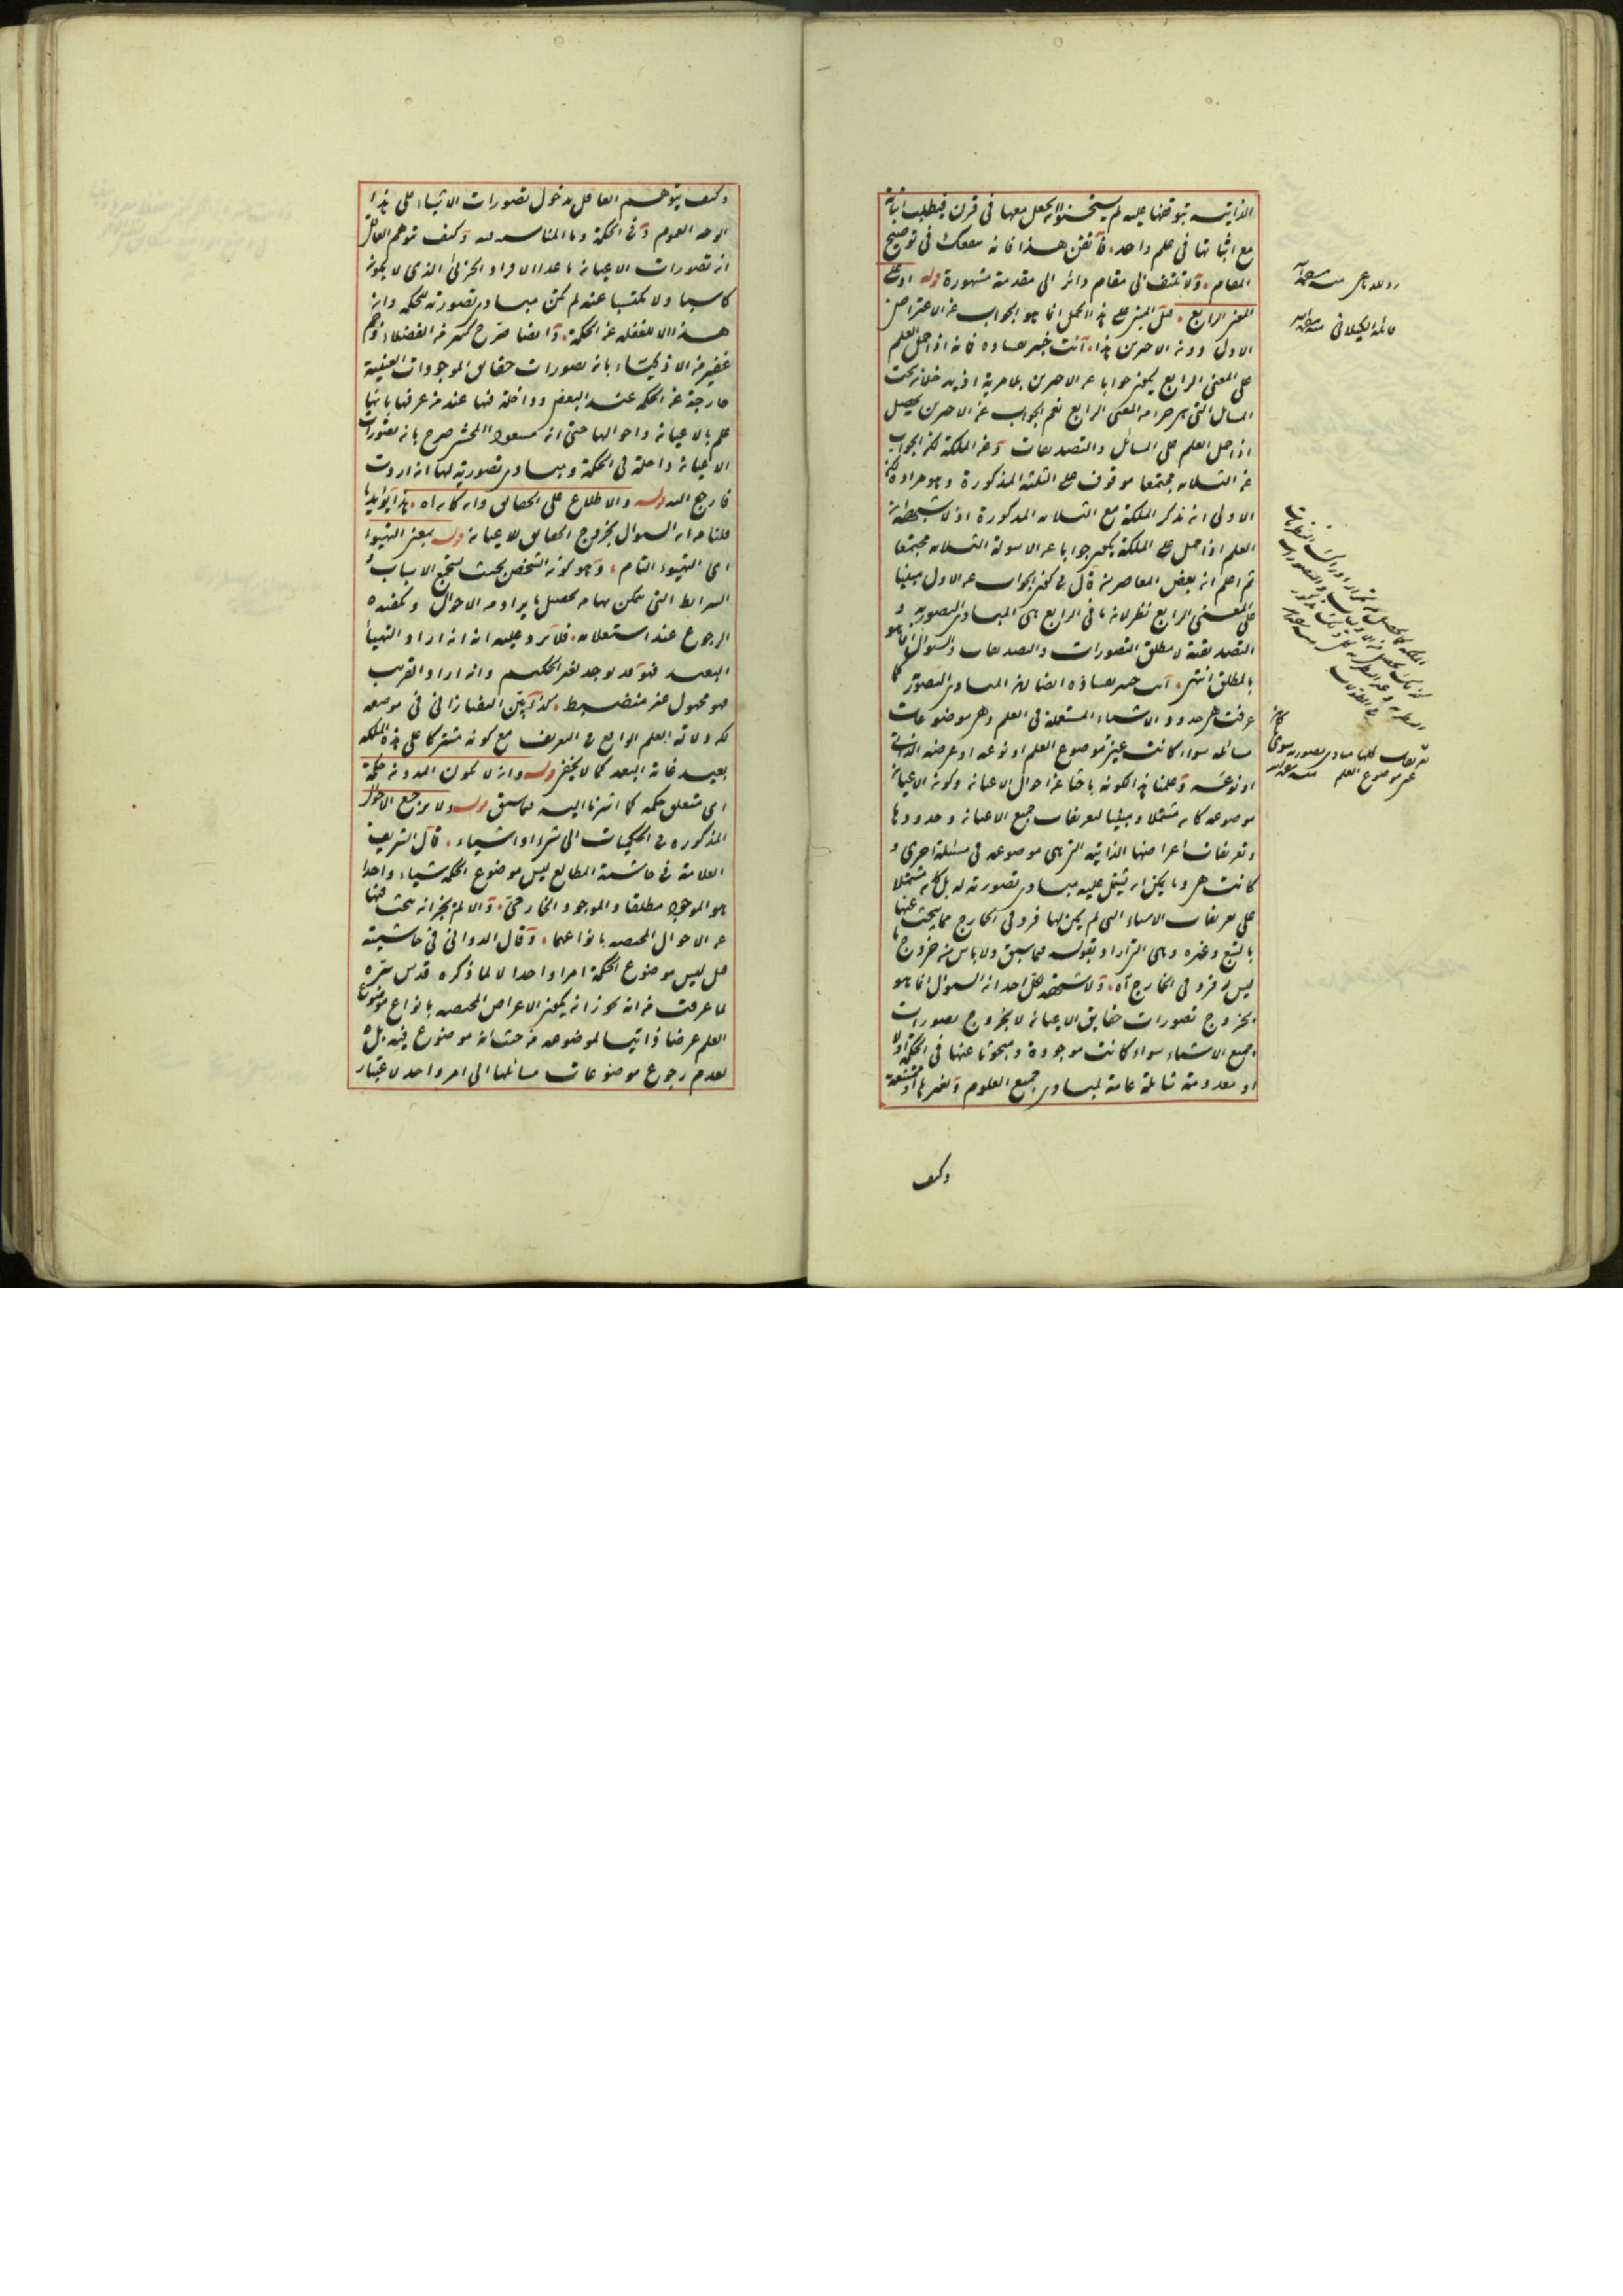 الذاتية بتوقفها عليه لم يستحسنوا ان يجعل معها في قرن فيطلب اثباته
مع اثباتها في علم واحد فاتقن هذا فانه ينفعك في توضيح
المقام ولا تلتفت الى مقام دائر الى مقدمة مشهورة قوله او على
المعنى الرابع قيل المبنى على هذا الحمل انما هو الجواب عن الاعتراض
الاول دون الاخرين هذا انت خبير بفساده فانه اذا حمل العلم
على المعنى الرابع يكون جوابا عن الاخرين بلا مرية اذ يدخلان تحت
المسائل التي هي جزء من المعنى الرابع نعم الجواب عن الاخرين يحصل
اذا حمل العلم على المسائل والتصديقات وعن الملكة لكن الجواب
عن الثلاث مجتمعا موقوف على الثلثة المذكورة وهو مراده لكن
الاولى ان يذكر الملكة مع الثلاث المذكورة اذ لا شبهة ان
العلم اذا حمل على الملكة يكون جوابا عن الاسولة الثلاث مجتمعا
ثم اعلم ان بعض المعاصرين قال في كون الجواب عن الاول مبنيا
على المعنى الرابع نظر لان ما في الرابع هي المبادي التصورية و
التصديقية لا مطلق التصورات والتصديقات والسوال انما هو
بالمطلق انتهى انت خبير بفساده ايضا لان المبادي التصورية كما
عرفت هي حدود الاشياء المستعملة في العلم وهي موضوعات
مسائله سواء كانت عين موضوع العلم او نوعه او عرضه الذاتي
او نوعه وعلمنا هذا لكونه باحثا عن احوال الاعيان وكون الاعيان
موضوعه كان مشتملا ومبينا لتعريفات جميع الاعيان وحدودها
وتعريفات اعراضها الذاتية التي هي موضوعه في مسئلة اخرى و
كانت هي وما يمكن ان يشتمل عليه مبادي تصورية له بل كان مشتملا
على تعريفات الاشياء التي لم يكن لها فرد في الخارج مما يبحث عنها
بالتبع وغيره وهي التي اراد بقوله فيما سبق ولا باس من خروج ما
ليس له فرد في الخارج آه ولا شبهة لكل احد ان السوال انما هو
بخروج تصورات حقايق الاعيان لا بخروج تصورات
جميع الاشياء سواء كانت موجودة ومبحوثا عنها في الحكمة اولا
او معدومة شاملة عامة لمبادي جميع العلوم ولغيرها او ممتنعة
وكيف
منه سلمه الله
منه سلمه الله
تعريفات كلها مبادي تصورية سوى
غير موضوع العلم منه سلمه الله
وكيف يتوهم العاقل بدخول تصورات الاشياء على هذا
الوجه العموم في الحكمة وما المناسبة فيه وكيف يتوهم العاقل
ان تصورات الاعيان ما عدا الافراد الجزئي الذي لا يكون
كاسبا ولا مكتسبا عنده لم تكن مبادي تصورية للحكمة وان
هذا الا للغفلة عن الحكمة وايضا صرح كثير من الفضلاء وجم
غفير من الاذكياء بان تصورات حقايق الموجودات العينية
خارجة عن الحكمة عند البعض وداخلة فيها عند من عرفها بانها
علم بالاعيان واحوالها حتى ان مسعود المحشي صرح بان تصورات
الاعيان داخلة في الحكمة ومبادي تصورية لها ان اردت
فارجع اليه قوله والاطلاع على الحقايق وان كان اه هذا يؤيد ما
قلنا من ان السوال بخروج الحقايق للاعيان قوله بمعنى التهيوء
اي التهيوء التام وهو كون الشخص بحيث استجمع الاسباب و
الشرايط التي يمكن بها من تحصيل ما يراد من الاحوال ويكفيه
الرجوع عند استعلامه فلا يرد عليه انه ان اراد التهيأ
البعيد فهو قد يوجد لغير الحكيم وان اراد القريب
فهو مجهول غير منضبط كذا بين التفتازاني في موضعه
لكن دلالة العلم الواقع في التعريف مع كونه مشتركا على هذه الملكة
بعيد غاية البعد كما لا يخفى قوله وان لا تكون المدونة حكمة
اي متعلق حكمة كما اشرنا اليه فيما سبق قوله ولا مرجع الاحوال
المذكورة في الحكميات الى شيء او اشياء قال الشريف
العلامة في حاشية المطالع ليس موضوع الحكمة شيئا واحدا
هو الموجود مطلقا والموجود الخارجي والا لم يجز ان يبحث فيها
عن الاحوال المختصة بانواعها وقال الدواني في حاشيته
قيل ليس موضوع الحكمة امرا واحدا لا لما ذكره قدس سره
لما عرفت من انه يجوز ان يكون الاعراض المختصة بانواع موضوع
العلم عرضا ذاتيا لموضوعه من حيث انه موضوع فيه بل
لعدم رجوع موضوعات مسائلها الى امر واحد لا عتبار